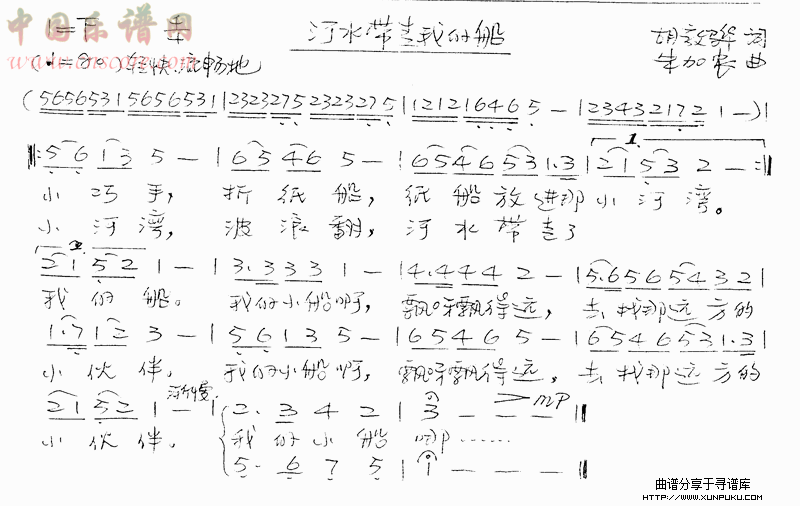 中国乐谱网
www.cnscore.com
1=F 4/4
河水带走我的船
胡敦骅 词
(♩=90) 轻快 流畅地
朱加农 曲
(5656531 5656531|2323275 2323275|12121646 5 –|23432172 1 –)|
1.
‖: 56 13 5 –|65 46 5 –|65 46 53 1.3|21 53 2 – :‖
小 巧 手, 折 纸 船, 纸 船 放 进那 小 河 湾。
小 河 湾, 波 浪 翻, 河 水 带 走了
2.
21 52 1 –|3.3 33 1 –|4.4 44 2 –|5.6 56 54 32|
我 的 船。 我的小船啊, 飘呀飘得远, 去找那远方的
1.7 12 3 –|56 13 5 –|65 46 5 –|65 46 53 1.3|
小 伙 伴, 我的小船啊, 飘呀飘得远, 去找那远方的
21 52 1 –|渐慢 2. 3 4 2|3 – – –‖ mp
小 伙 伴。 我 的 小 船 ……
5. 6 7 5|1 – – –‖
曲谱分享于寻谱库
HTTP://WWW.XUNPUKU.COM